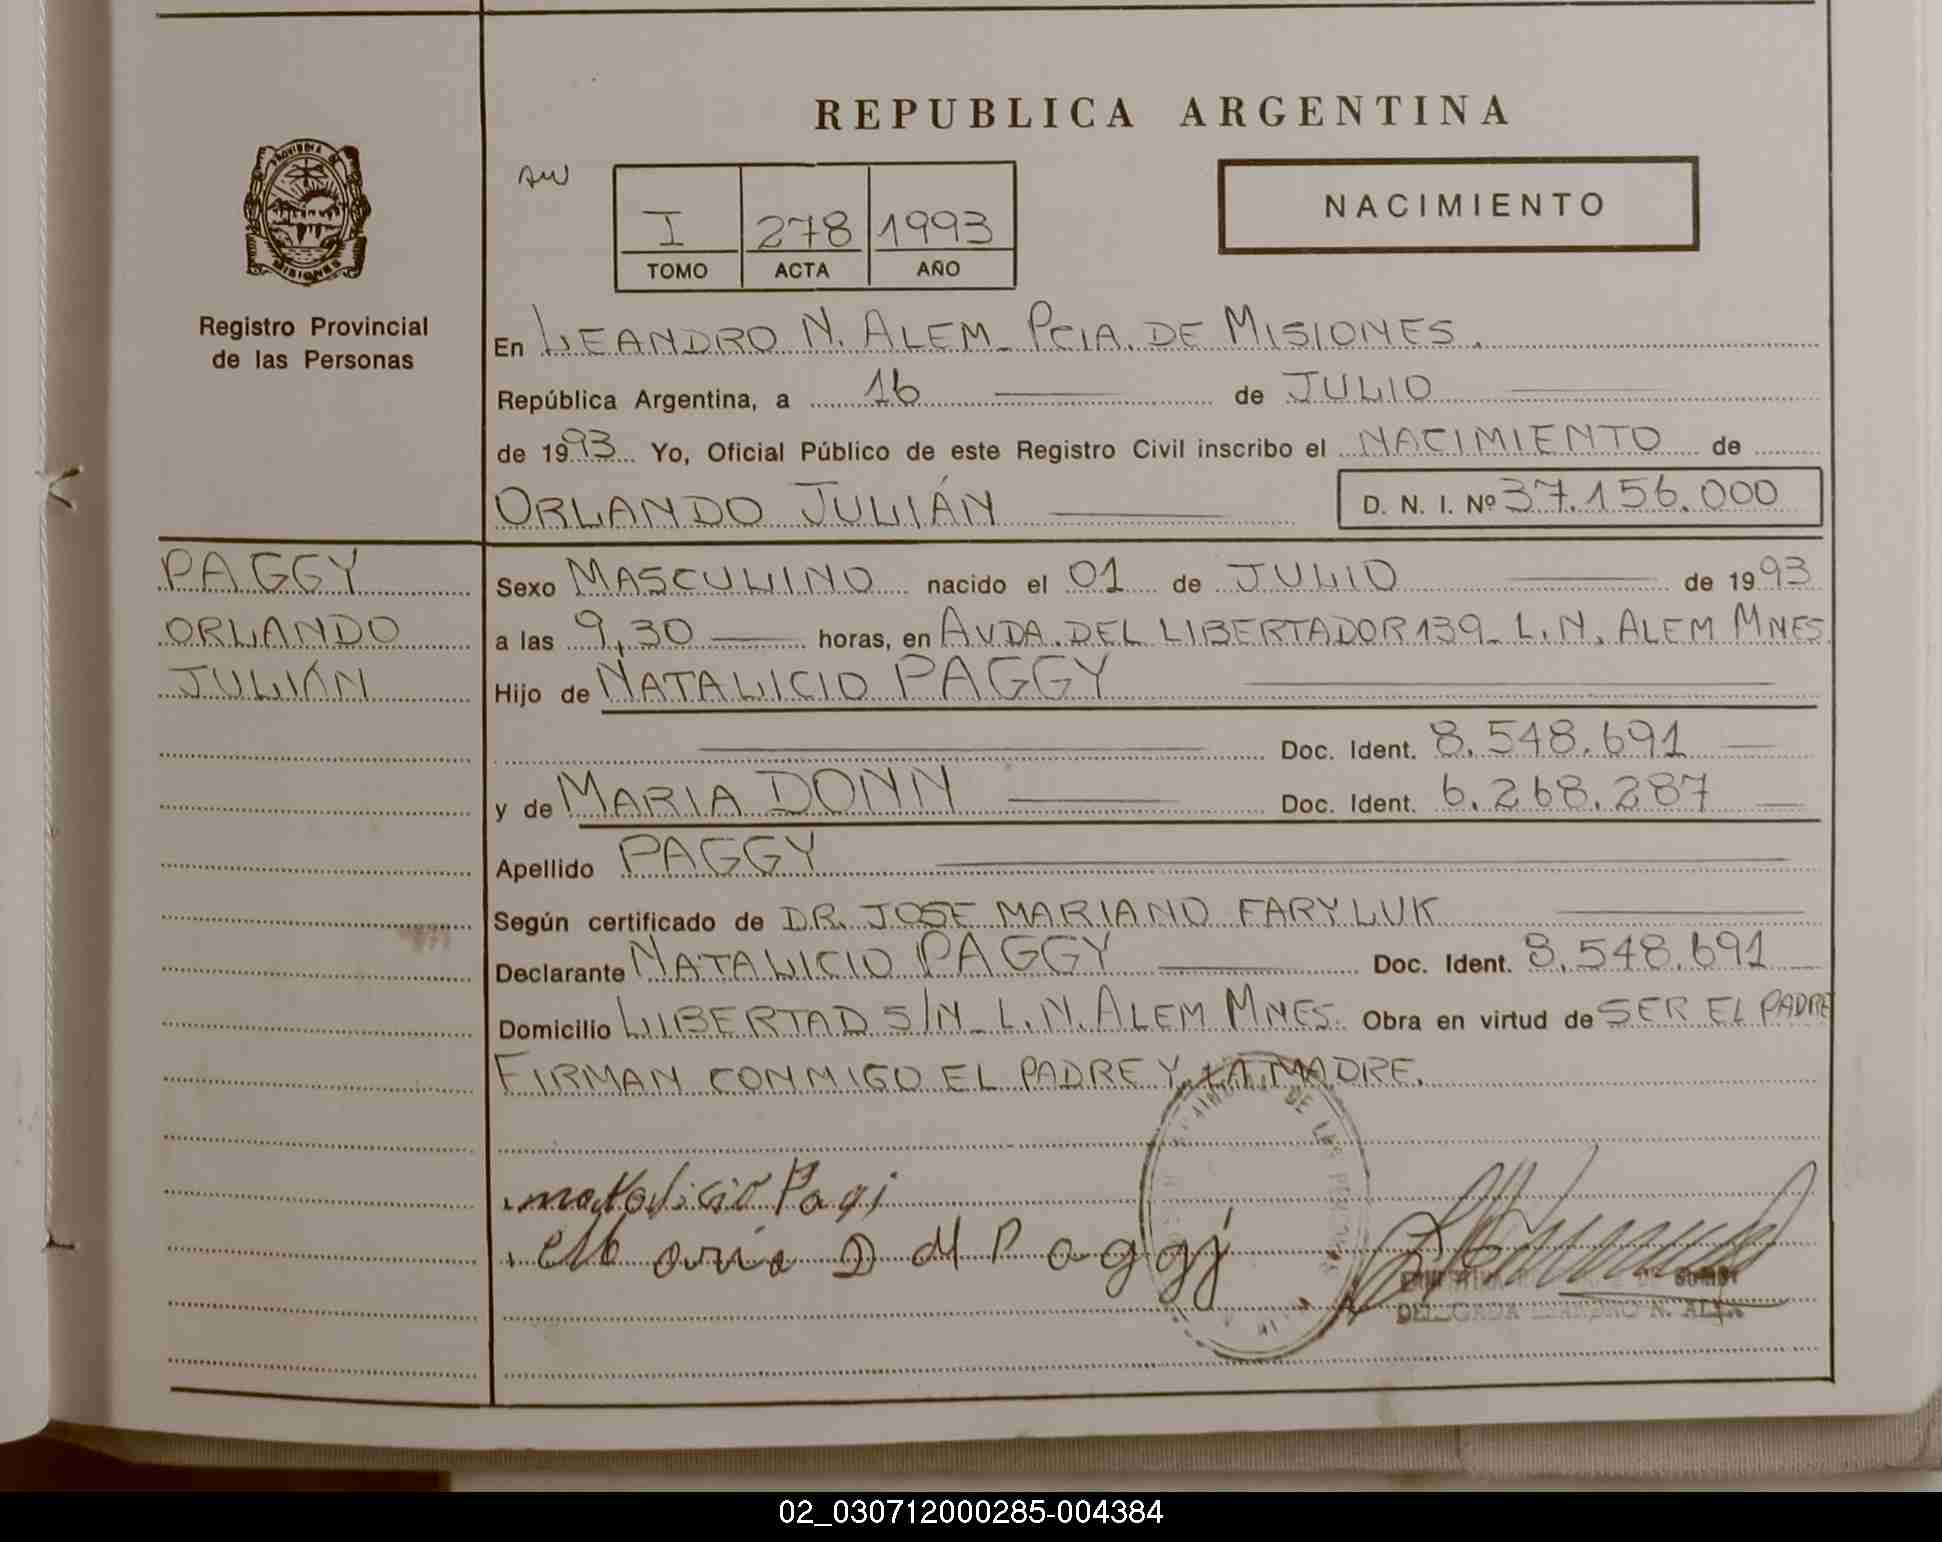 REPUBLICA ARGENTINA
PROVINCIA DE
MISIONES
Registro Provincial
de las Personas
I 278 1993
TOMO ACTA AÑO
NACIMIENTO
En LEANDRO N. ALEM_ PCIA. DE MISIONES.
República Argentina, a 16 de JULIO
de 1993 Yo, Oficial Público de este Registro Civil inscribo el NACIMIENTO de
ORLANDO JULIÁN D. N. I. Nº 37.156.000
PAGGY
ORLANDO
JULIÁN
Sexo MASCULINO nacido el 01 de JULIO de 1993
a las 9,30 horas, en AVDA. DEL LIBERTADOR 139_ L.N. ALEM MNES.
Hijo de NATALICIO PAGGY
Doc. Ident. 8.548.691
y de MARIA DONN Doc. Ident. 6.268.287
Apellido PAGGY
Según certificado de DR. JOSE MARIANO FARYLUK
Declarante NATALICIO PAGGY Doc. Ident. 8.548.691
Domicilio LIBERTAD S/N_ L.N. ALEM MNES. Obra en virtud de SER EL PADRE
FIRMAN CONMIGO EL PADRE Y LA MADRE.
DE LAS
natalicio Pagi
Maria D d Paggy
DELEGADA LEANDRO N. ALEM
02_030712000285-004384